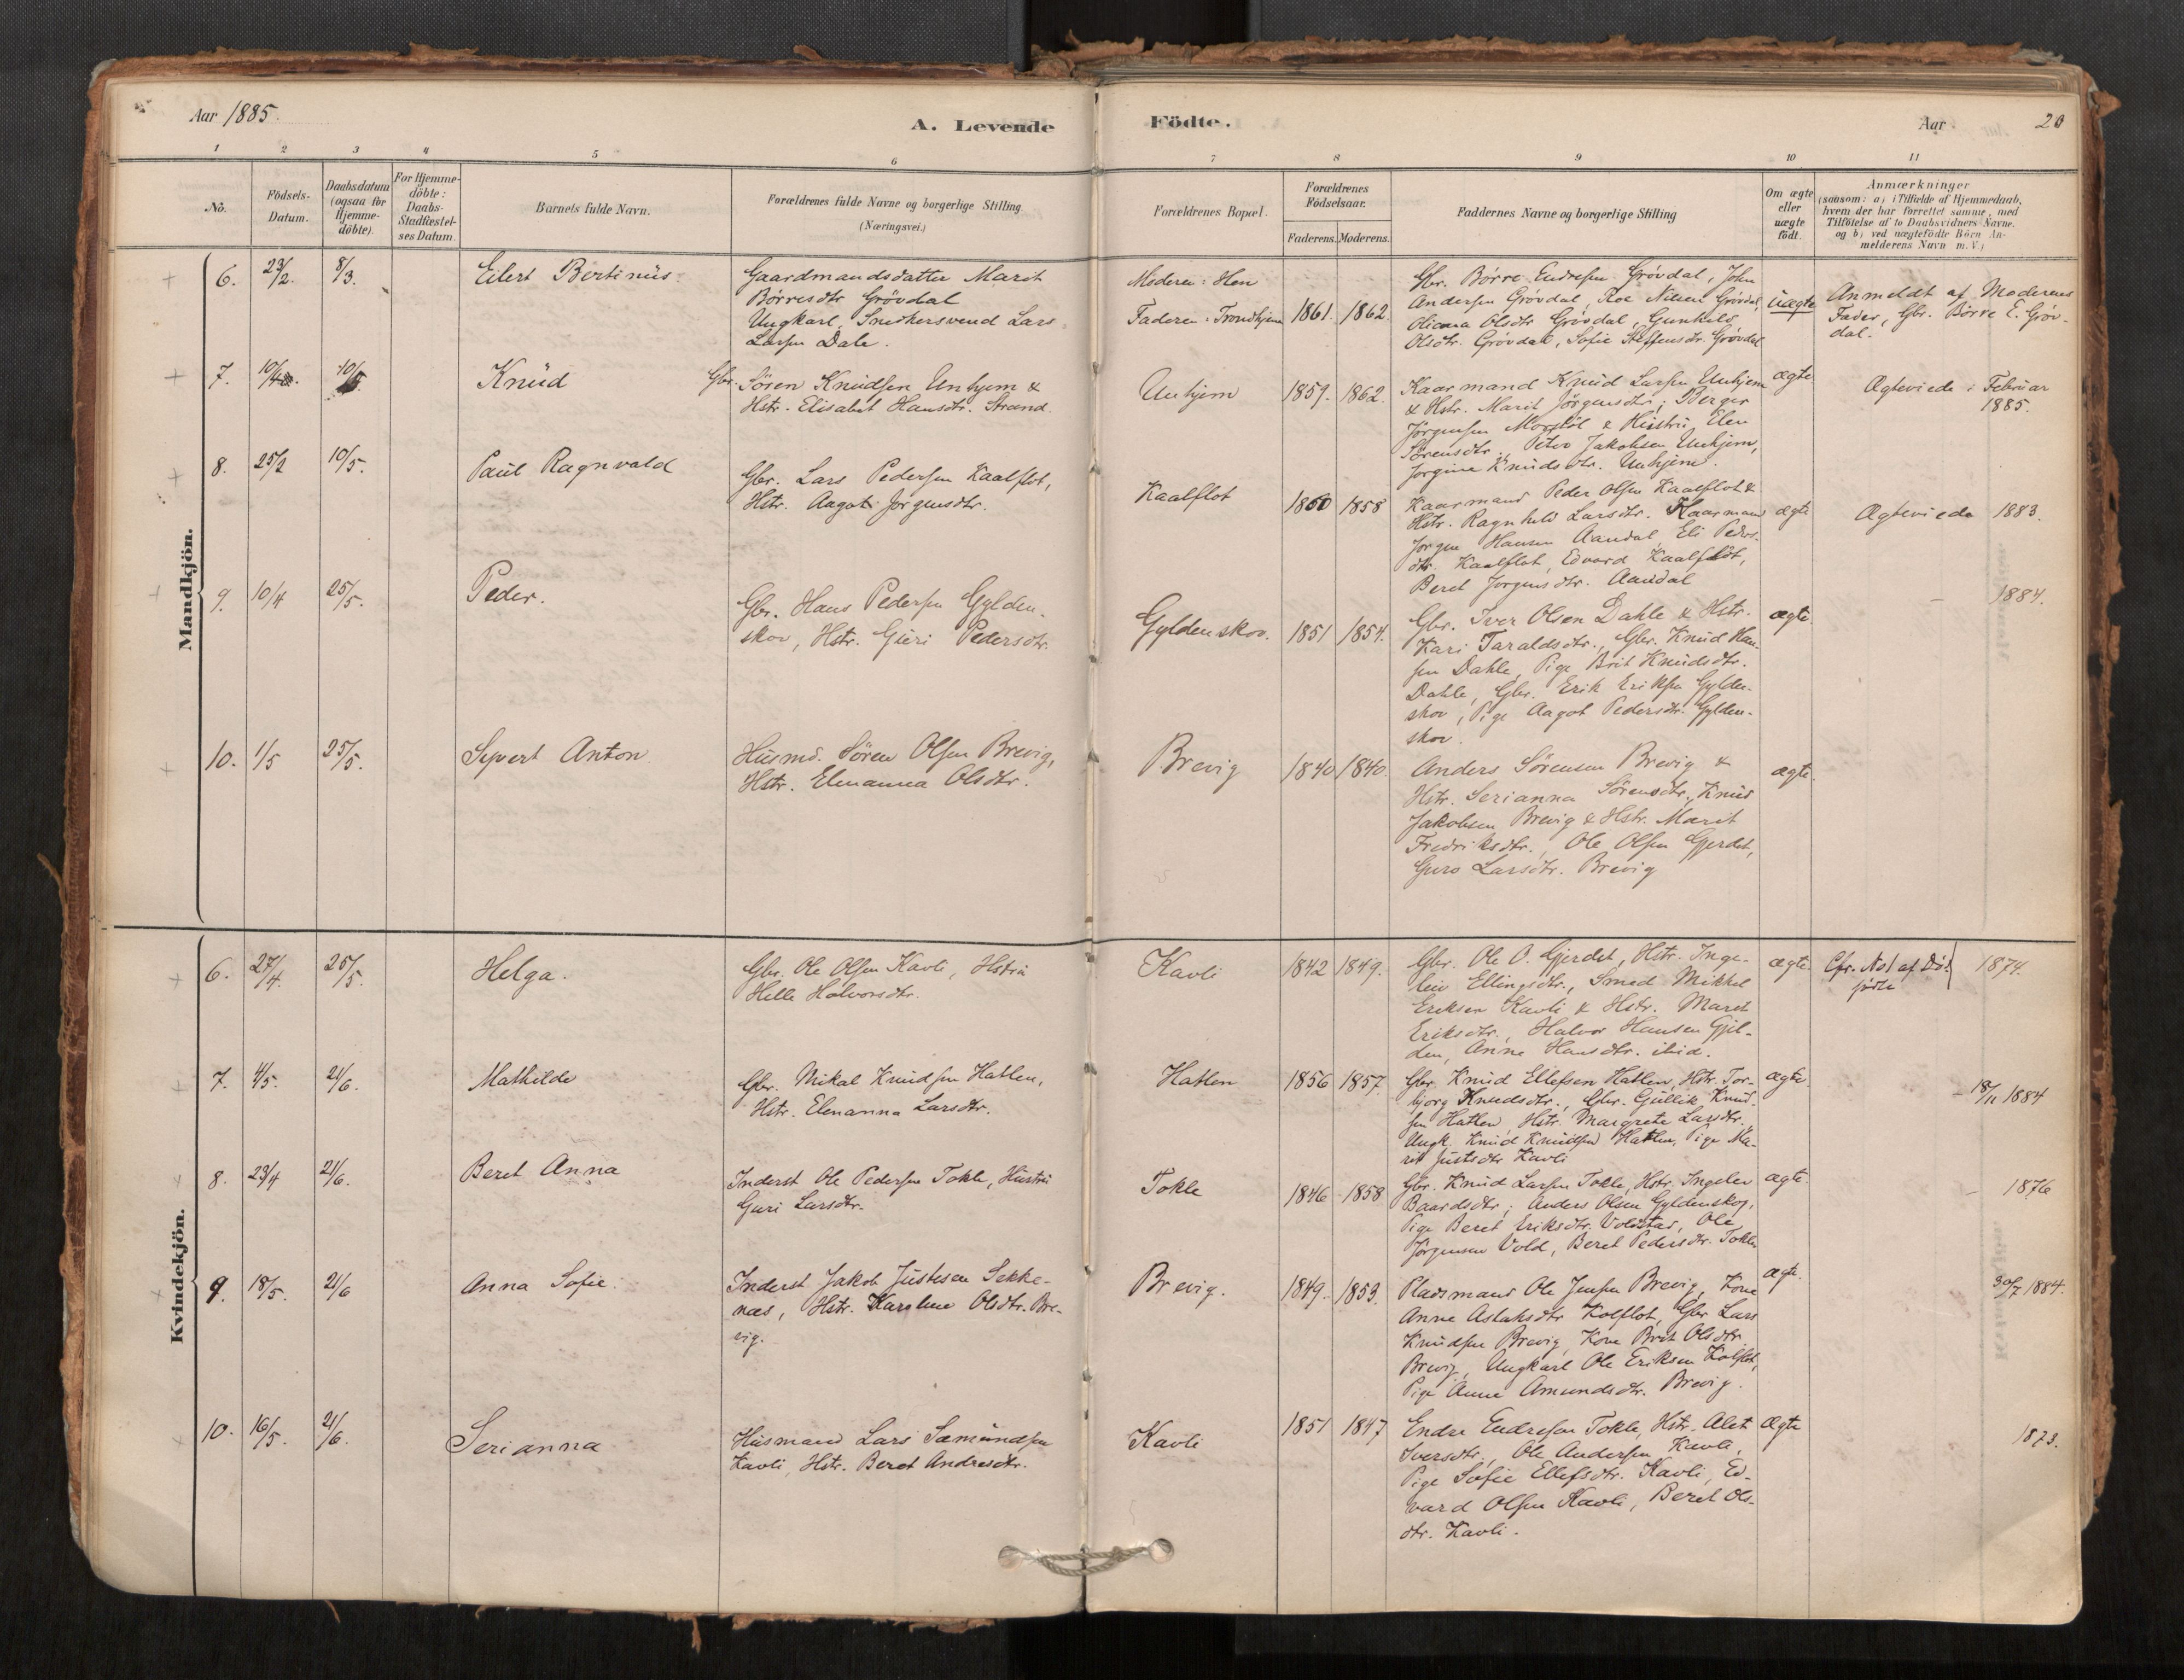 Aar 1885.
A. Levende
Födte.
Aar
20
1
2
3
4
5
6
7
8
9
10
11
No.
Födsels-
Datum.
Daabsdatum
(ogsaa for
Hjemme-
döbte).
For Hjemme-
döbte:
Daabs-
Stadfæstel-
ses Datum.
Barnets fulde Navn.
Forældrenes fulde Navne og borgerlige Stilling.
(Næringsvei.)
Forældrenes Bopæl.
Forældrenes
Födselsaar.
Faderens.
Moderens.
Faddernes Navne og borgerlige Stilling
Om ægte
eller
uægte
födt.
Anmærkninger
(saasom: a) i Tilfælde af Hjemmedaab,
hvem der har forrettet samme, med
Tilföielse af to Daabsvidners Navne.
og b) ved uægtefödte Börn An-
melderens Navn m. V.)
Mandkjön.
6.
23/2.
8/3.
Eilert Bertinus
Gaardmandsdatter Marit
Börresdtr Grövdal
Ungkarl, Snedkersvend Lars
Larsen Dale.
Moderen: Hen
Faderen: Trondhjem
1861.
1862.
Gbr. Börre Endresen Grövdal, John
Andersen Grövdal, Roe Nilsen Grövdal,
Oliana Olsdtr Grövdal, Gunhild
Olsdtr. Grövdal, Sofie Steffensdr. Grövdal
Uægte
Anmeldt af Moderens
Fader, Gbr. Börre E. Gröv-
dal.
7.
10/5.
Knud
Gbr. Sören Knudsen Unhjem &
Hstr. Elisabet Hansdtr. Strand.
Unhjem
1859.
1862.
Kaarmand Knud Larsen Unhjem
& Hstr. Marit Jörgensdtr; Berger
Jörgensen Morstöl & Hustru Elen
Sörensdtr., Peter Jakobsen Unhjem,
Jorgine Knudsdtr. Unhjem.
ægte
Ægteviede i Februar
1885.
8.
25/2
10/5.
Paul Ragnvald
Gbr. Lars Pedersen Kaalflot,
Hstr. Aagot Jorgensdtr.
Kaalflot
1860
1858
Kaarmand Peder Olsen Kaalflot &
Hstr. Ragnhild Larsdtr. Kaarmand
Jorgen Hansen Aandal, Eli Peders-
dtr. Kaalflot, Edvard Kaalflot,
Beret Jorgensdtr. Aandal
ægte
Ægteviede 1883.
9.
10/4
25/5.
Peder.
Gbr. Hans Pedersen Gylden-
skov, Hstr. Guri Pedersdtr.
Gyldenskov.
1851
1854.
Gbr. Iver Olsen Dahle & Hstr.
Kari Taraldsdtr., Gbr. Knud Han-
sen Dahle, Pige Brit Knudsdtr.
Dahle, Gbr. Erik Eriksen Gylden-
skov, Pige Aagot Pedersdtr. Gylden-
skov.
ægte
– 1884.
10.
1/5
25/5.
Syvert Anton
Husmd. Sören Olsen Brevig,
Hstr. Elenanna Olsdtr.
Brevig
1840
1840.
Anders Sörensen Brevig &
Hstr. Serianna Sörensdtr., Knud
Jakobsen Brevig & Hstr. Marit
Fredriksdtr., Ole Olsen Gjerdet,
Guro Larsdtr. Brevig
ægte.
Kvindekjön.
6.
27/4.
25/5.
Helga.
Gbr. Ole Olsen Kavli, Hstru
Helle Halvorsdtr.
Kavli
1842
1849.
Gbr. Ole O. Gjerdet, Hstr. Inge-
leiv Ellingsdtr., Smed Mikkel
Eriksen Kavli & Hstr. Marit
Eriksdtr., Halvor Hansen Gjil-
den, Anne Hansdtr. ibid.
ægte.
Cfr. No 1 af Död-
födte
1874.
7.
4/5.
21/6.
Mathilde
Gbr. Mikal Knudsen Hatlen,
Hstr. Elenanna Larsdtr.
Hatlen
1856
1857.
Gbr. Knud Ellefsen Hatlen, Hstr. Tor-
bjorg Knudsdtr., Gbr. Gullik Knud-
sen Hatlen, Hstr. Margrete Larsdtr.
Ungk. Knud Knudsen Hatlen, Pige Ma-
rit Justsdtr Kavli
ægte.
– 18/11 1884
8.
23/4
21/6.
Beret Anna
Inderst Ole Pedersen Tokle, Hustru
Guri Larsdtr.
Tokle
1846
1858
Gbr. Knud Larsen Tokle, Hstr. Ingelev
Baardsdtr; Anders Olsen Gyldenskog,
Pige Beret Eriksdtr. Voldstad, Ole
Jörgensen Vold, Beret Pedersdtr. Tokle
ægte.
– 1876
9.
18/5.
21/6
Anna Sofie.
Inderst Jakob Justesen Sekke-
næs, Hstr. Karoline Olsdtr. Bre-
vig.
Brevig.
1849.
1853.
Pladsmand Ole Jensen Brevig, Kone
Anne Aslaksdtr Kolflot, Gbr Lars
Knudsen Brevig, Kone Brit Olsdtr
Brevig, Ungkarl Ole Eriksen Kolflot,
Pige Anne Amundsdtr. Brevig.
ægte.
30/7 1884.
10.
16/5.
21/6.
Serianna
Husmand Lars Samundsen
Kavli, Hstr. Beret Andresdtr.
Kavli
1851
1847
Endre Endresen Tokle, Hstr. Alet
Iversdtr., Ole Andersen Kavli,
Pige Sofie Ellefsdtr. Kavli, Ed-
vard Olsen Kavli, Beret Ols-
dtr. Kavli.
Ægte
1873.